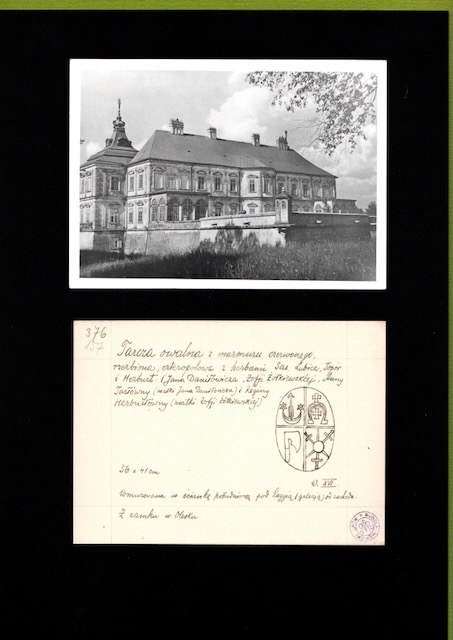 376
157
Tarcza owalna z marmuru czerwonego,
rzeźbiona, czteropolowa z herbami Sas, Lubicz, Topór
i Herburt. (Jana Daniłowicza, Zofji Żółkiewskiej, Anny
Tarłówny (matki Jana Daniłowicza) i Reginy
Herburtówny (matki Zofji Żółkiewskiej)
W. XVII.
36 x 41 cm
Wmurowana w ściankę południową pod loggią (galerią) od zachodu.
Z zamku w Olesku